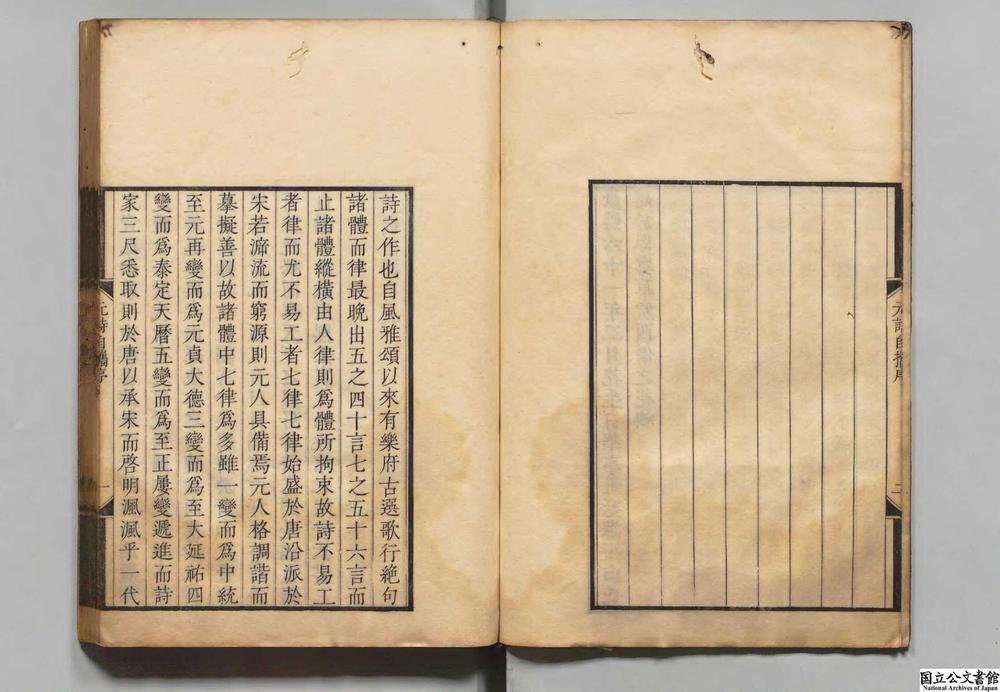 元詩自攜序
二
詩之作也自風雅頌以來有樂府古選歌行絶句
諸體而律最晩出五之四十言七之五十六言而
止諸體縱橫由人律則爲體所拘束故詩不易工
者律而尤不易工者七律七律始盛於唐沿派於
宋若㴑流而窮源則元人具備焉元人格調諧而
摹擬善以故諸體中七律爲多雖一變而爲中統
至元再變而爲元貞大德三變而爲至大延祐四
變而爲泰定天曆五變而爲至正屢變遞進而詩
家三尺悉取則於唐以承宋而啓明渢渢乎一代
元詩自攜序
一
国立公文書館
National Archives of Japan